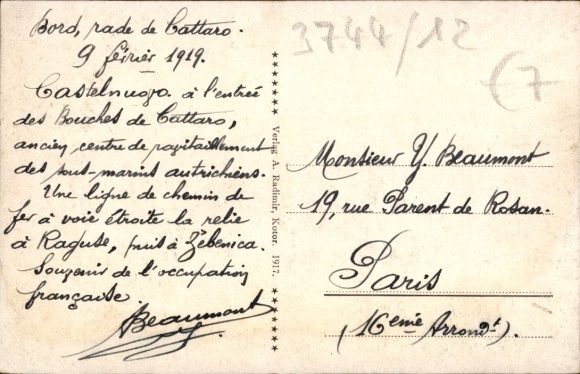 Bord, rade de Cattaro.
9 février 1919.
Castelnuovo à l'entrée
des Bouches de Cattaro,
ancien centre de ravitaillement
des sous-marins autrichiens.
Une ligne de chemin de
fer à voie étroite la relie
à Raguse, puis à Zebenica.
Souvenir de l'occupation
française
Beaumont
Verlag A. Radimir, Kotor. 1917.
3744/12
(7
Monsieur Y. Beaumont
19, rue Parent de Rosan.
Paris
(16eme Arrondt).